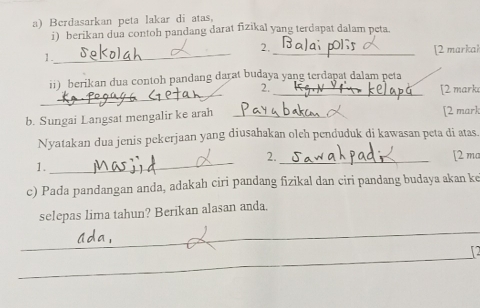 a) Berdasarkan peta lakar di atas,
i) berikan dua contoh pandang darat fizikal yang terdapat dalam peta.
1. Sekolah 2. Balai polis [2 markah
ii) berikan dua contoh pandang darat budaya yang terdapat dalam peta
Getah 2. kelapa [2 mark
b. Sungai Langsat mengalir ke arah [2 mark
Nyatakan dua jenis pekerjaan yang diusahakan oleh penduduk di kawasan peta di atas.
1. Masjid 2. Sawah padi [2 ma
c) Pada pandangan anda, adakah ciri pandang fizikal dan ciri pandang budaya akan ke
selepas lima tahun? Berikan alasan anda.
ada,
[2